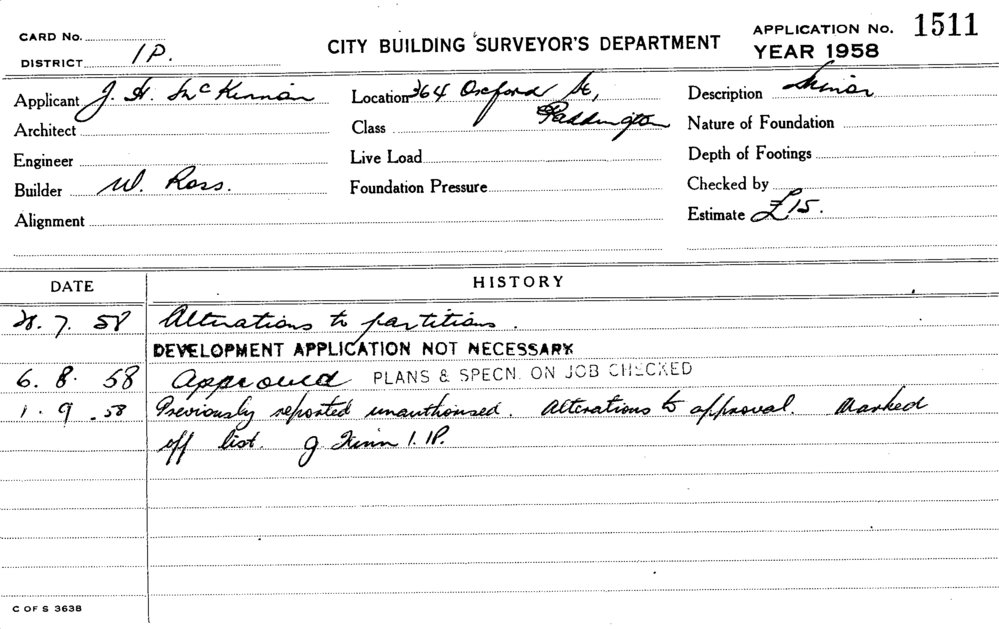 CARD No.
CITY BUILDING SURVEYOR'S DEPARTMENT
APPLICATION No. 1511
DISTRICT 1P.
YEAR 1958
Applicant J. H. McKinnon
Location 364 Oxford St,
Paddington
Description Minor
Architect
Class
Nature of Foundation
Engineer
Live Load
Depth of Footings
Builder W. Ross.
Foundation Pressure
Checked by
Alignment
Estimate £15.
DATE HISTORY
7. 58 Alterations to partitions.
DEVELOPMENT APPLICATION NOT NECESSARY
6. 8. 58 Approved PLANS & SPECN. ON JOB CHECKED
1. 9. 58 Previously reported unauthorised. Alterations to approval. Marked
off list. 1. 1P.
C OF S 3638